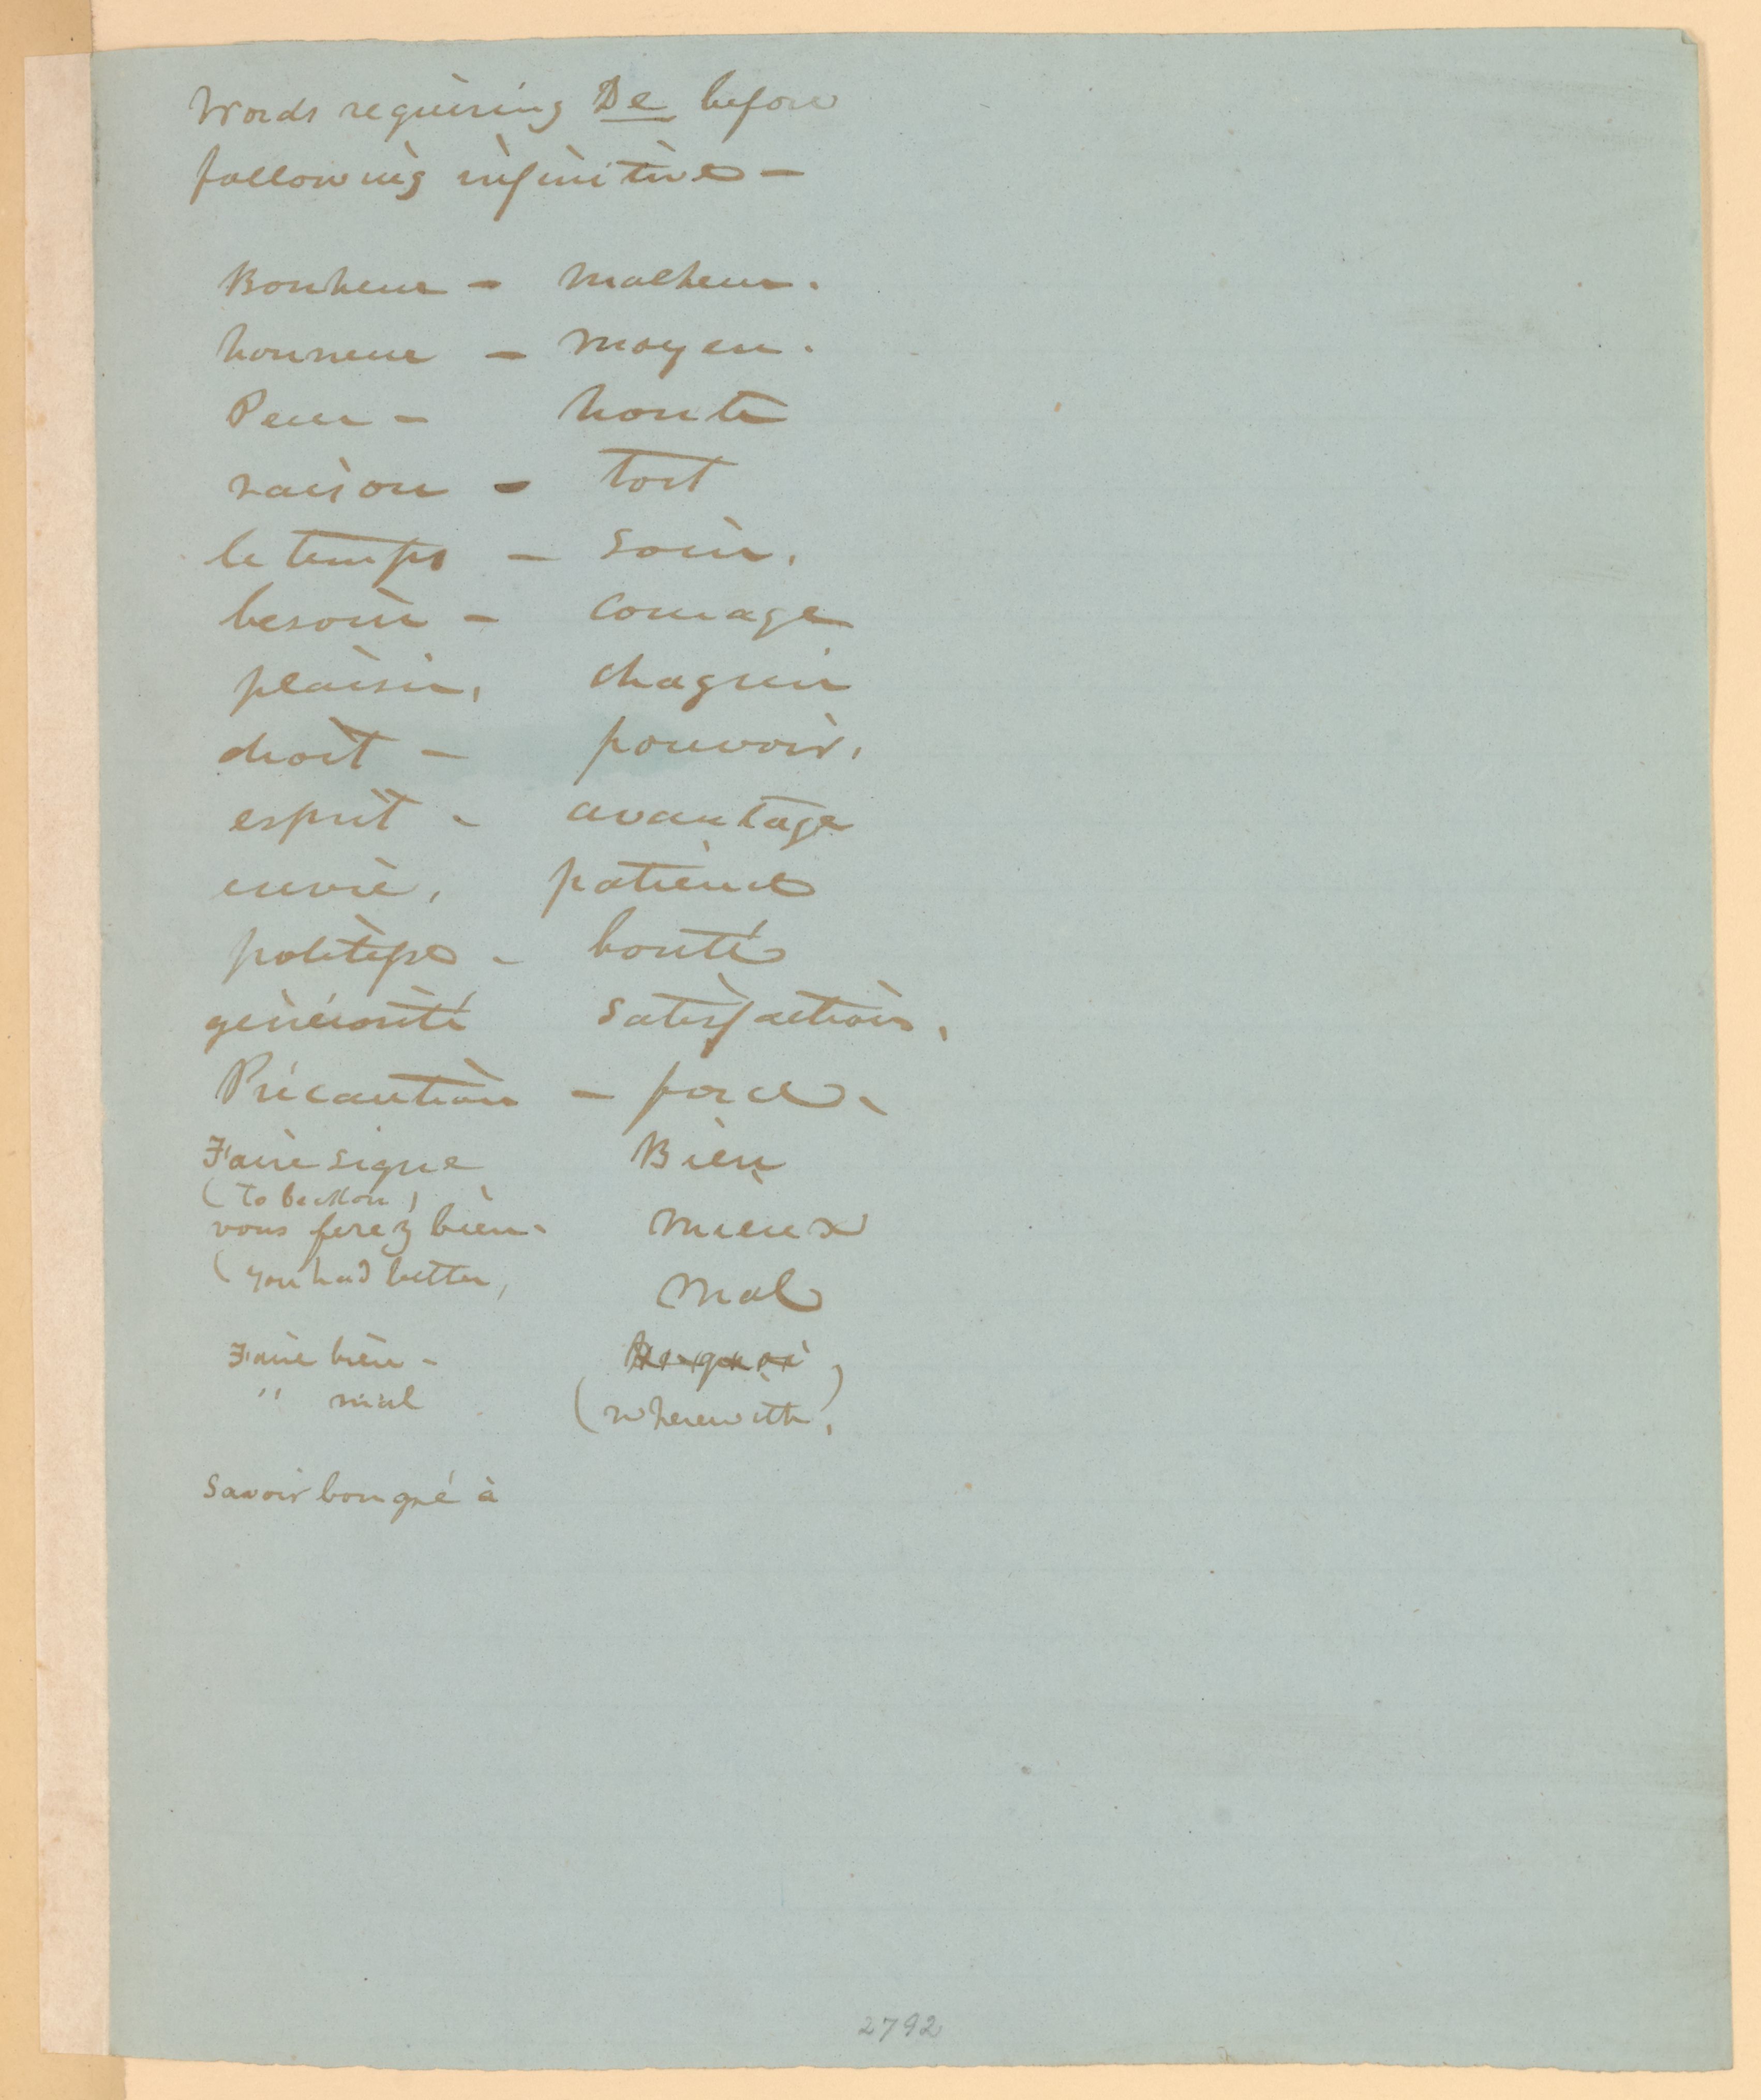 Words requiring De before
following infinitive —
Bonheur — Malheur.
honneur — Moyen.
Peur — honte
raison — tort
le temps — Soin.
besoin — Courage
plaisir, chagrin
droit — pouvoir,
esprit - avantage
envie, patience
politesse - bonté
générosité satisfaction,
Précaution — force -
Faire signe Bien
(to beckon)
vous ferez bien - Mieux
(you had better, Mal
Faire bien -
" mal (wherewith),
Savoir bon gré à
2792